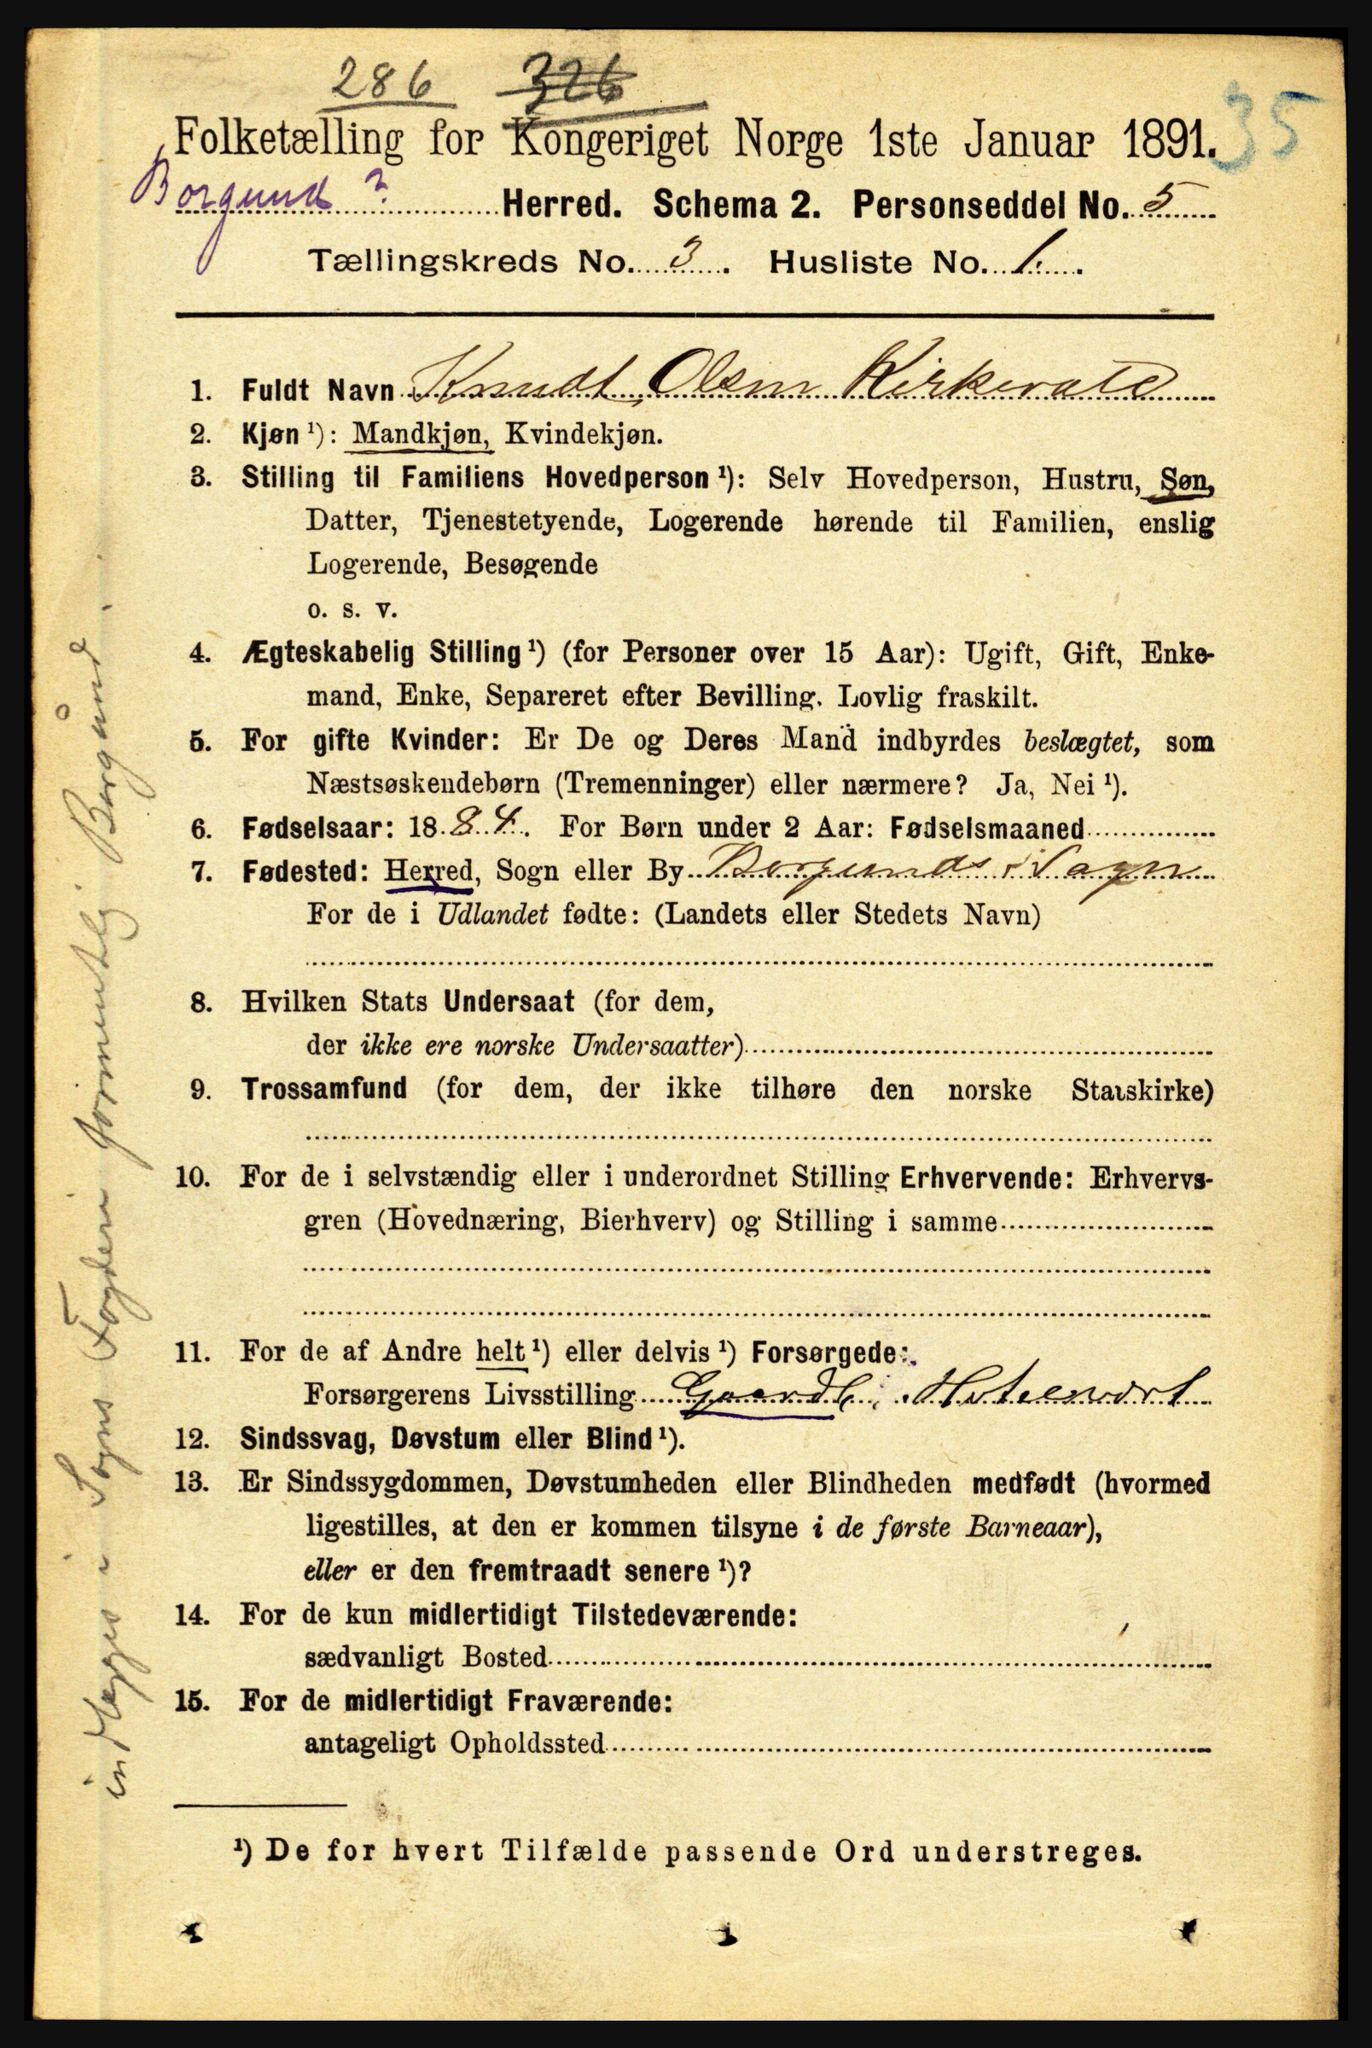 286 326
Folketælling for Kongeriget Norge 1ste Januar 1891. 35
Borgund ? Herred. Schema 2. Personseddel No. 5
Tællingskreds No. 3. Husliste No. 1.
1. Fuldt Navn Knudt Olsen Kirkevold
2. Kjøn ¹): Mandkjøn, Kvindekjøn.
3. Stilling til Familiens Hovedperson ¹): Selv Hovedperson, Hustru, Søn,
Datter, Tjenestetyende, Logerende hørende til Familien, enslig
Logerende, Besøgende
o. s. v.
4. Ægteskabelig Stilling ¹) (for Personer over 15 Aar): Ugift, Gift, Enke-
mand, Enke, Separeret efter Bevilling. Lovlig fraskilt.
5. For gifte Kvinder: Er De og Deres Mand indbyrdes beslægtet, som
Næstsøskendebørn (Tremenninger) eller nærmere? Ja, Nei ¹).
6. Fødselsaar: 1884. For Børn under 2 Aar: Fødselsmaaned
7. Fødested: Herred, Sogn eller By Borgunds Sogn
For de i Udlandet fødte: (Landets eller Stedets Navn)
8. Hvilken Stats Undersaat (for dem,
der ikke ere norske Undersaatter)
9. Trossamfund (for dem, der ikke tilhøre den norske Statskirke)
10. For de i selvstændig eller i underordnet Stilling Erhvervende: Erhvervs-
gren (Hovednæring, Bierhverv) og Stilling i samme
11. For de af Andre helt ¹) eller delvis ¹) Forsørgede:
Forsørgerens Livsstilling Gaardb.
12. Sindssvag, Døvstum eller Blind ¹).
13. Er Sindssygdommen, Døvstumheden eller Blindheden medfødt (hvormed
ligestilles, at den er kommen tilsyne i de første Barneaar),
eller er den fremtraadt senere ¹)?
14. For de kun midlertidigt Tilstedeværende:
sædvanligt Bosted
15. For de midlertidigt Fraværende:
antageligt Opholdssted
¹) De for hvert Tilfælde passende Ord understreges.
i Sogns Fogderi formentlig Borgund.